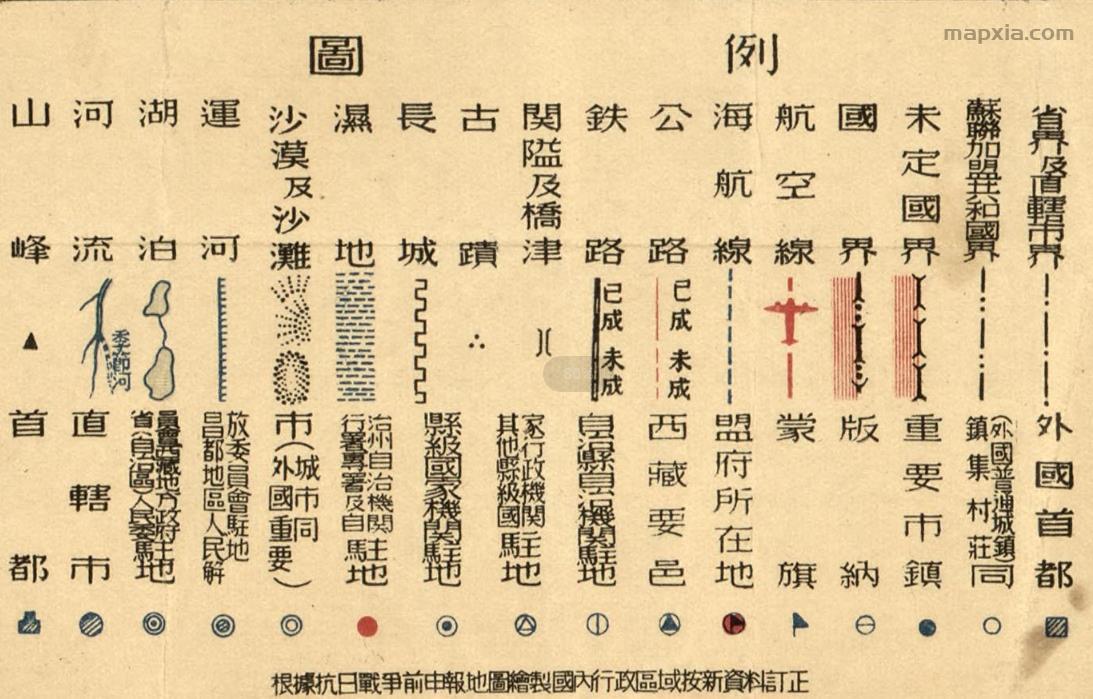 mapxia.com
圖例
山峰
河流
季節河
湖泊
運河
沙漠及沙灘
濕地
長城
古蹟
関隘及橋津
鉄路
已成 未成
公路
已成 未成
海航線
航空線
國界
未定國界
蘇聯加盟共和國界
省界及直轄市界
首都
直轄市
省(自治區)人民委
員會西藏地方政府駐地
昌都地區人民解
放委員會駐地
市(外國重要
城市同)
行署專署及自
治州自治機関駐地
縣級國家機関駐地
其他縣級國
家行政機関駐地
自治縣自治機関駐地
西藏要邑
盟府所在地
蒙旗
版納
重要市鎮
鎮集村莊
(外國普通城鎮)同
外國首都
根據抗日戰爭前申報地圖繪製國內行政區域按新資料訂正